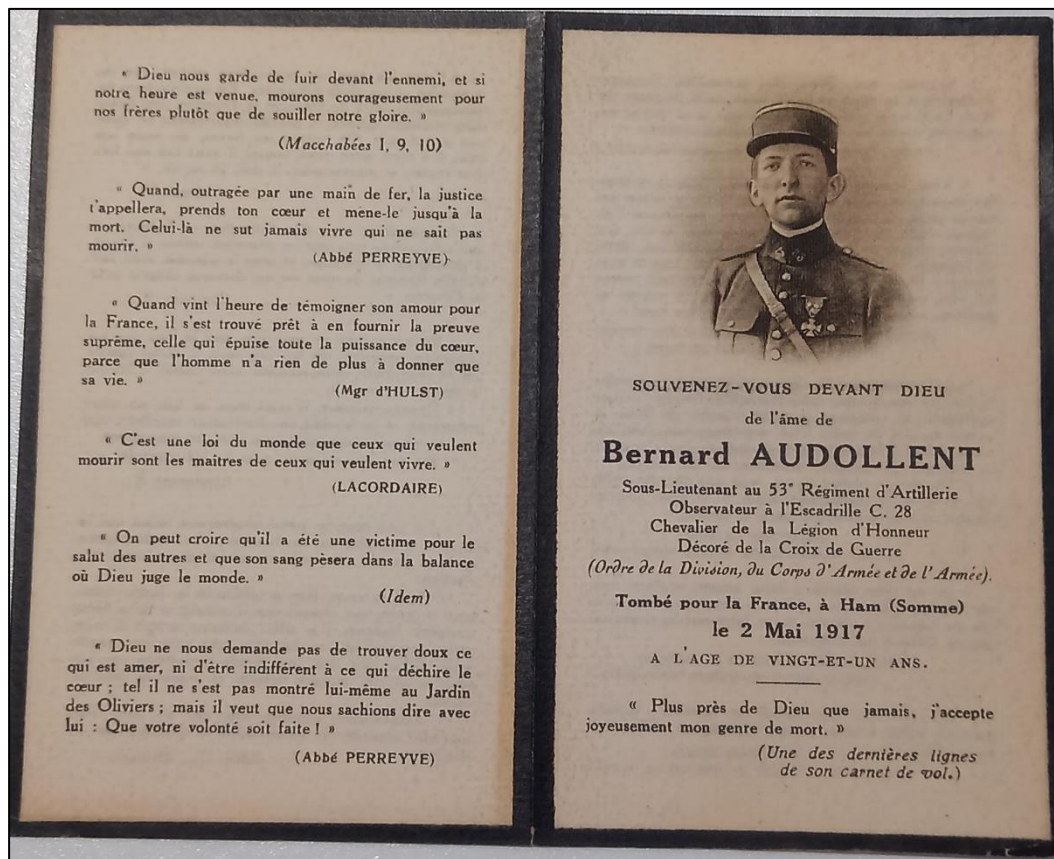 « Dieu nous garde de fuir devant l'ennemi, et si
notre heure est venue, mourons courageusement pour
nos frères plutôt que de souiller notre gloire. »
(Macchabées I, 9, 10)
« Quand, outragée par une main de fer, la justice
t'appellera, prends ton cœur et mène-le jusqu'à la
mort. Celui-là ne sut jamais vivre qui ne sait pas
mourir. »
(Abbé PERREYVE)
« Quand vint l'heure de témoigner son amour pour
la France, il s'est trouvé prêt à en fournir la preuve
suprême, celle qui épuise toute la puissance du cœur,
parce que l'homme n'a rien de plus à donner que
sa vie. »
(Mgr d'HULST)
« C'est une loi du monde que ceux qui veulent
mourir sont les maîtres de ceux qui veulent vivre. »
(LACORDAIRE)
« On peut croire qu'il a été une victime pour le
salut des autres et que son sang pèsera dans la balance
où Dieu juge le monde. »
(Idem)
« Dieu ne nous demande pas de trouver doux ce
qui est amer, ni d'être indifférent à ce qui déchire le
cœur ; tel il ne s'est pas montré lui-même au Jardin
des Oliviers ; mais il veut que nous sachions dire avec
lui : Que votre volonté soit faite ! »
(Abbé PERREYVE)
SOUVENEZ-VOUS DEVANT DIEU
de l'âme de
Bernard AUDOLLENT
Sous-Lieutenant au 53e Régiment d'Artillerie
Observateur à l'Escadrille C. 28
Chevalier de la Légion d'Honneur
Décoré de la Croix de Guerre
(Ordre de la Division, du Corps d'Armée et de l'Armée).
Tombé pour la France, à Ham (Somme)
le 2 Mai 1917
A L'AGE DE VINGT-ET-UN ANS.
« Plus près de Dieu que jamais, j'accepte
joyeusement mon genre de mort. »
(Une des dernières lignes
de son carnet de vol.)